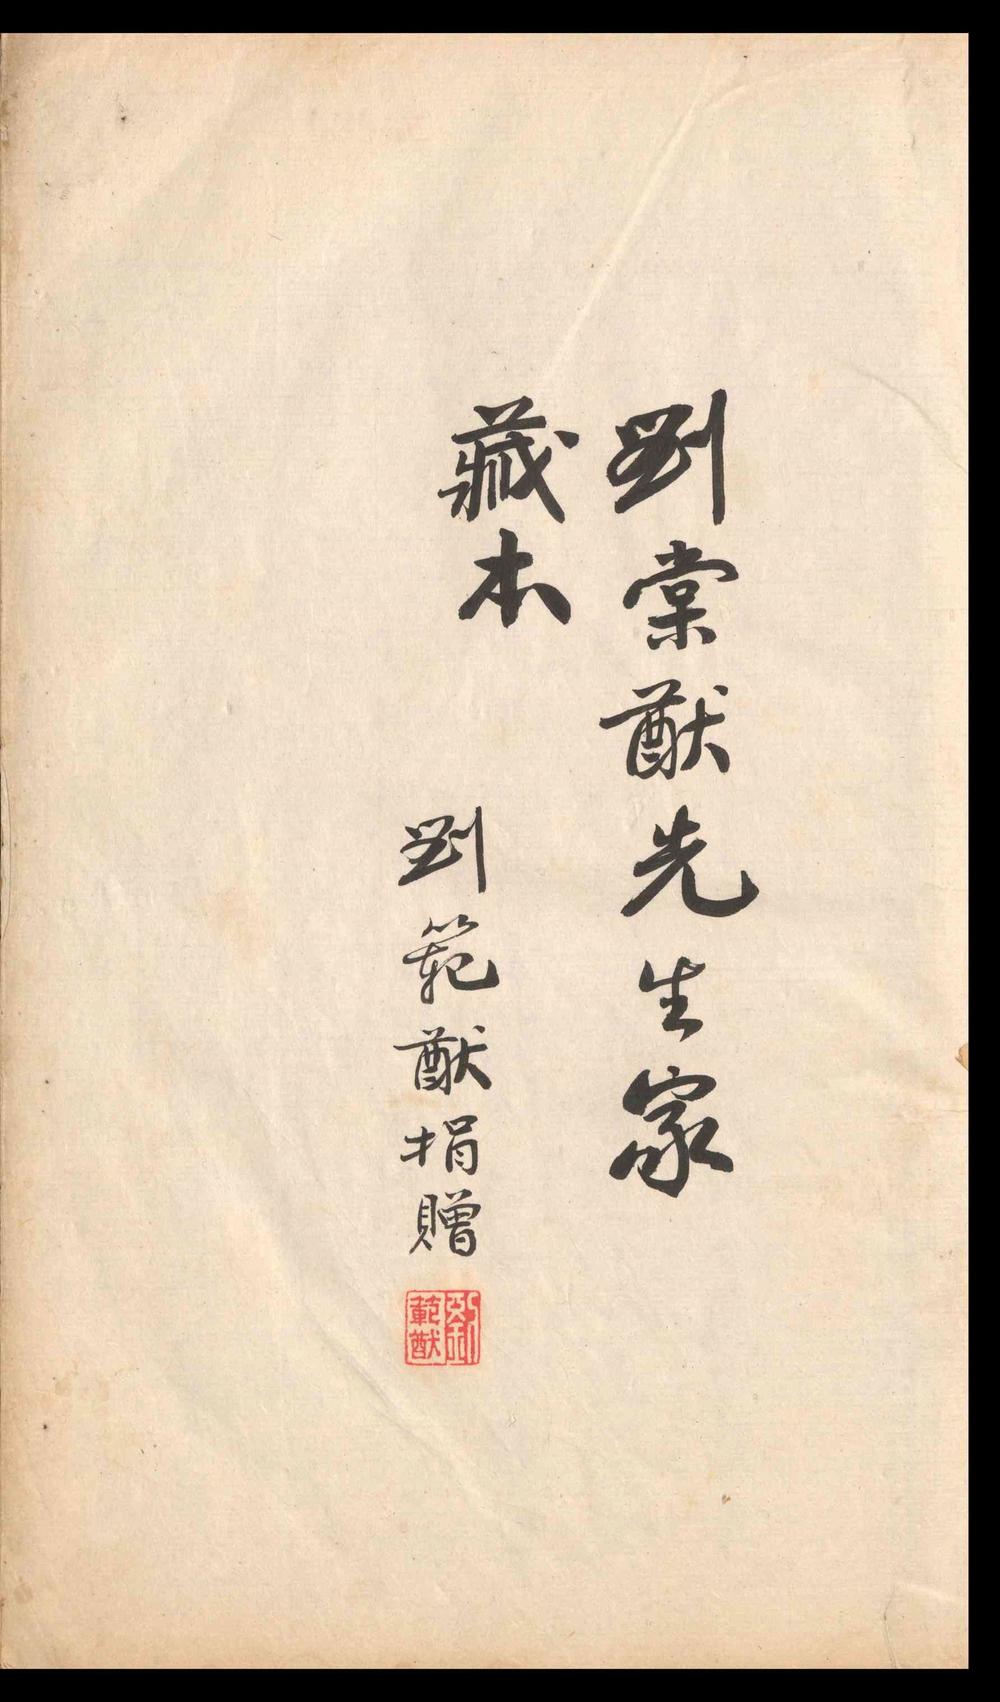 劉棠猷先生家
藏本
劉範猷捐贈
劉範猷